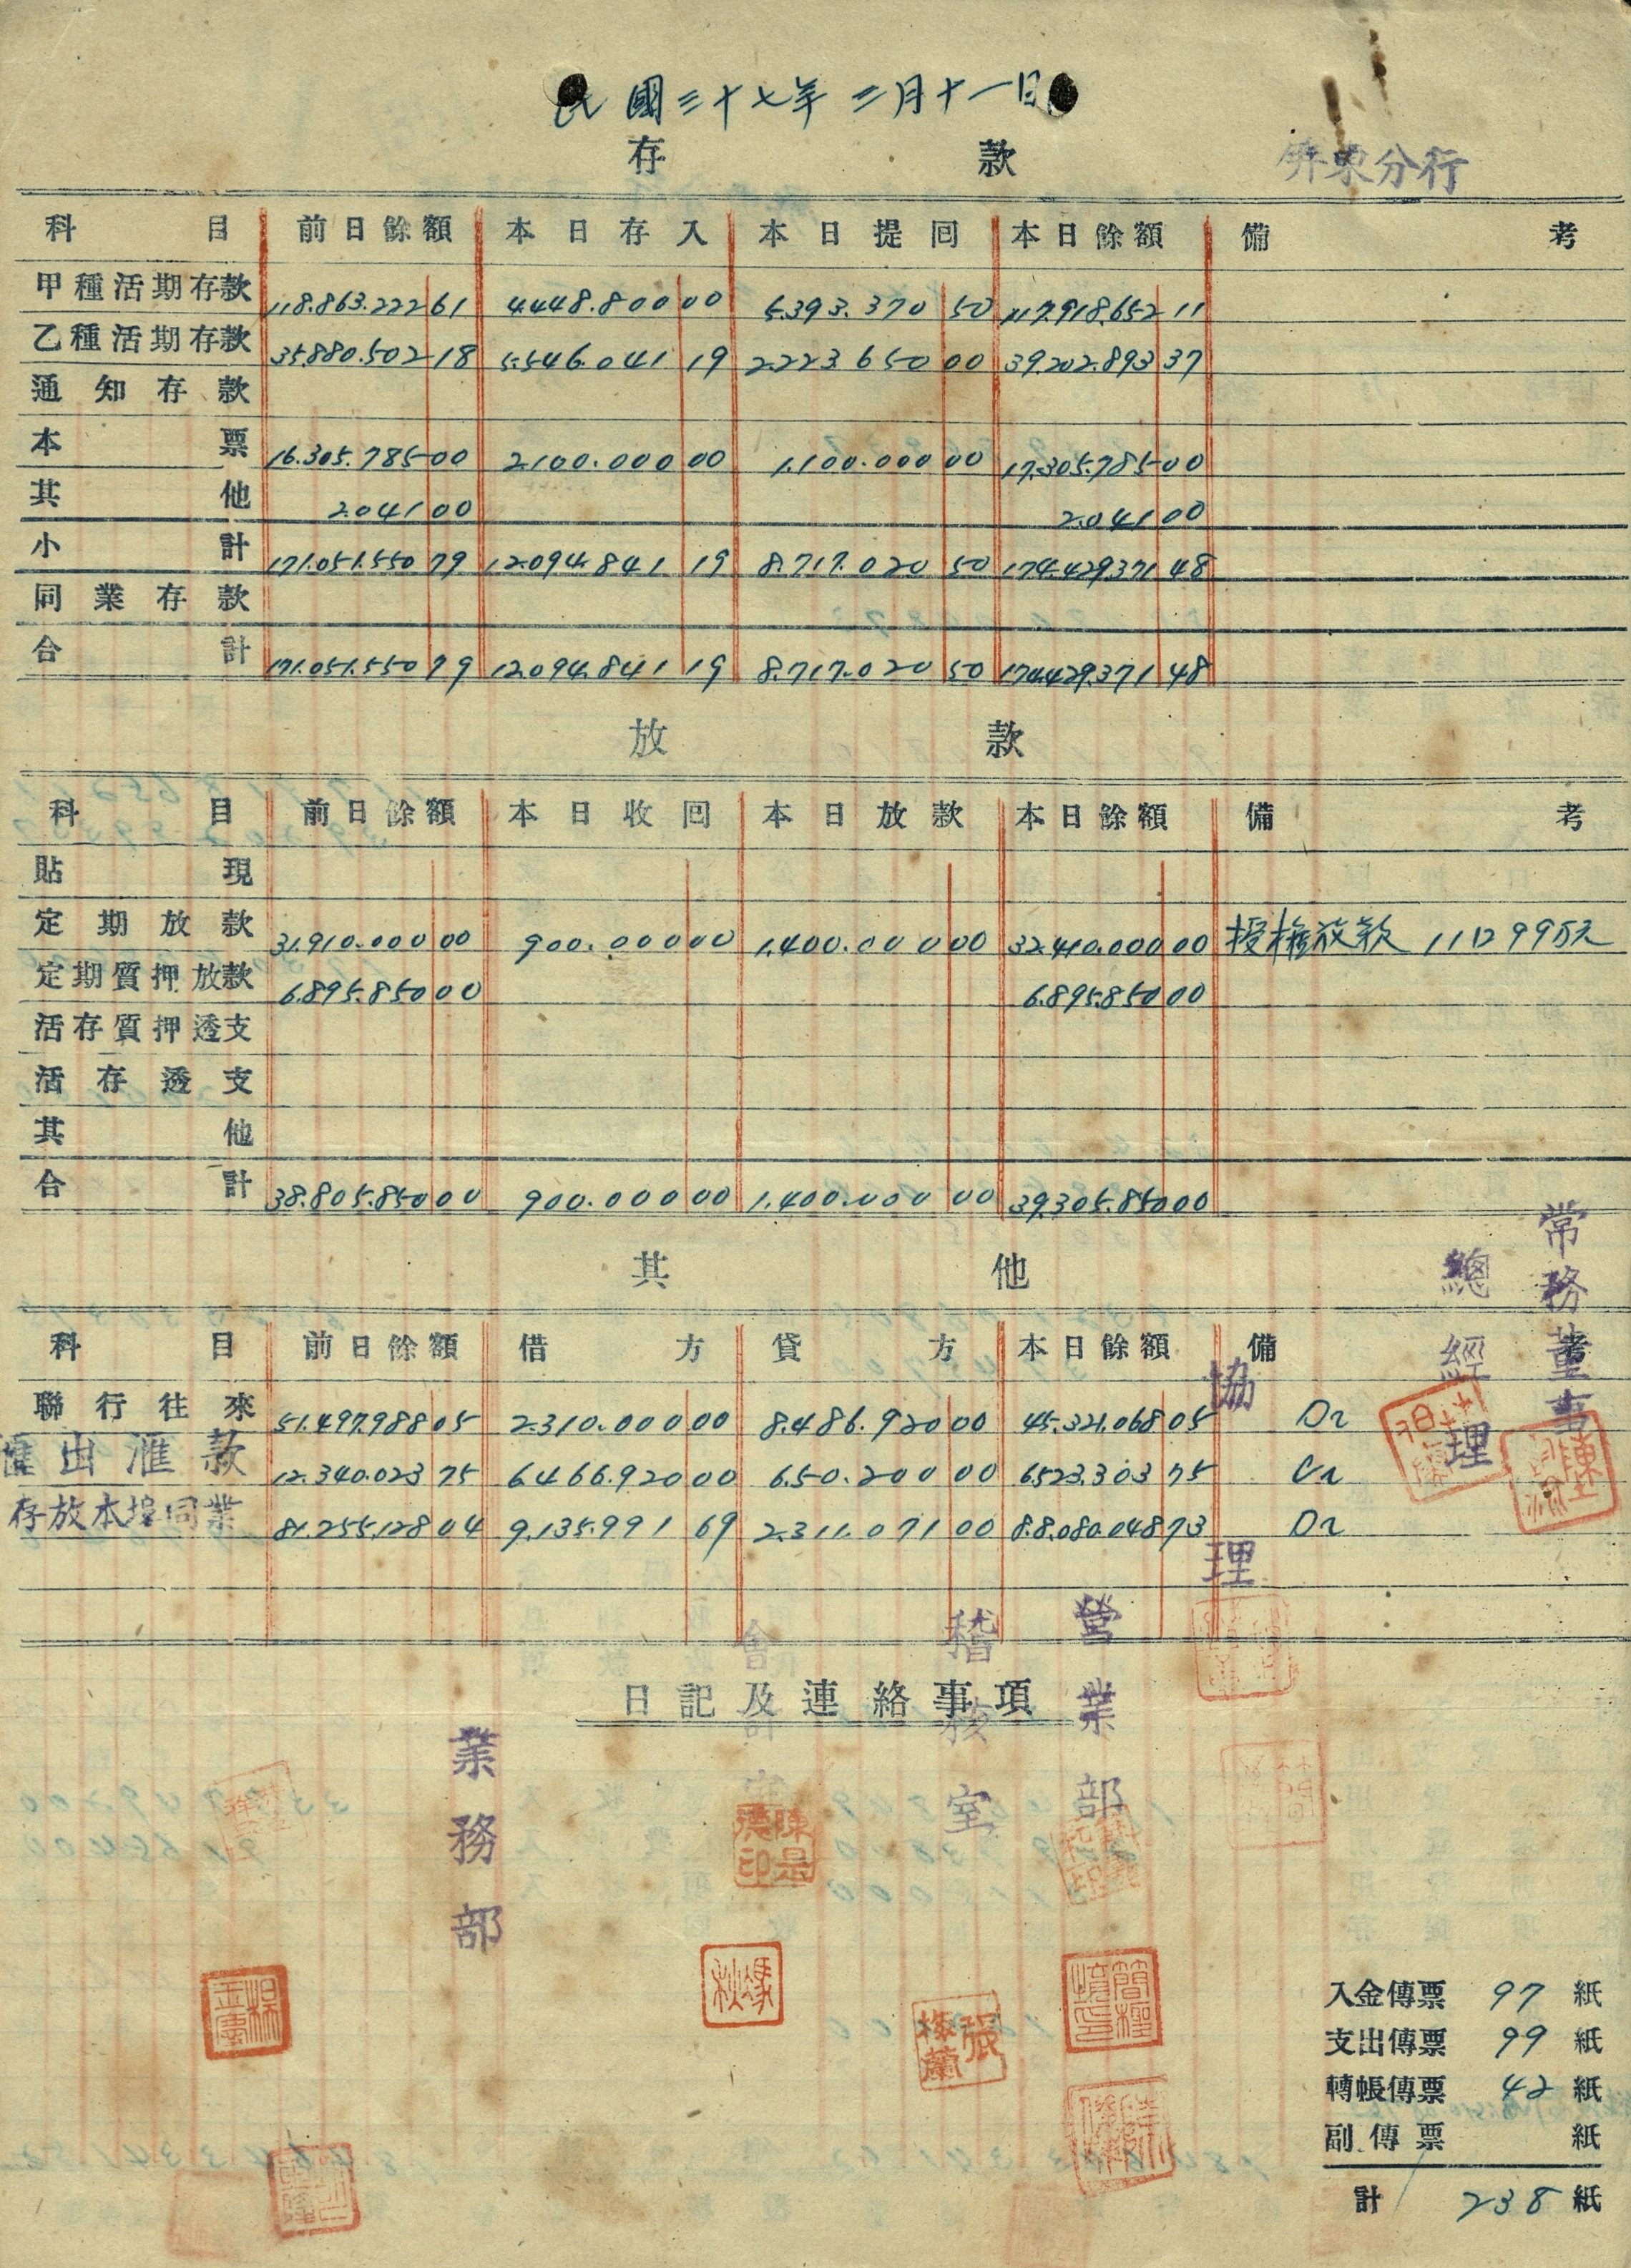 民國三十七年二月十一日
存款
屏東分行
科目 前日餘額 本日存入 本日提回 本日餘額 備考
甲種活期存款 118.863.222 61 4.448.800 00 5.393.370 50 117.918.652 11
乙種活期存款 35.880.502 18 5.546.041 19 2.223.650 00 39.202.893 37
通知存款
本票 16.305.785 00 2.100.000 00 1.100.000 00 17.305.785 00
其他 2.041 00 2.041 00
小計 171.051.550 79 12.094.841 19 8.717.020 50 174.429.371 48
同業存款
合計 171.051.550 79 12.094.841 19 8.717.020 50 174.429.371 48
放款
科目 前日餘額 本日收回 本日放款 本日餘額 備考
貼現
定期放款 31.910.000 00 900.000 00 1.400.000 00 32.410.000 00 授權放款 11口 99万元
定期質押放款 6.895.850 00 6.895.850 00
活存質押透支
活存透支
其他
合計 38.805.850 00 900.000 00 1.400.000 00 39.305.850 00
其他
科目 前日餘額 借方 貸方 本日餘額 備考
聯行往來 51.497.988 05 2.310.000 00 8.486.920 00 45.321.068 05 Dr
匯出滙款 12.340.023 75 6.466.920 00 650.200 00 6.523.303 75 Cr
存放本埠同業 81.255.128 04 9.135.991 69 2.311.071 00 88.080.048 73 Dr
常務董事
總經理
協理
營業部
稽核室
會計室
業務部
日記及連絡事項
陳是德印
張梅蘭
入金傳票 97 紙
支出傳票 99 紙
轉帳傳票 42 紙
副傳票 紙
計 238 紙